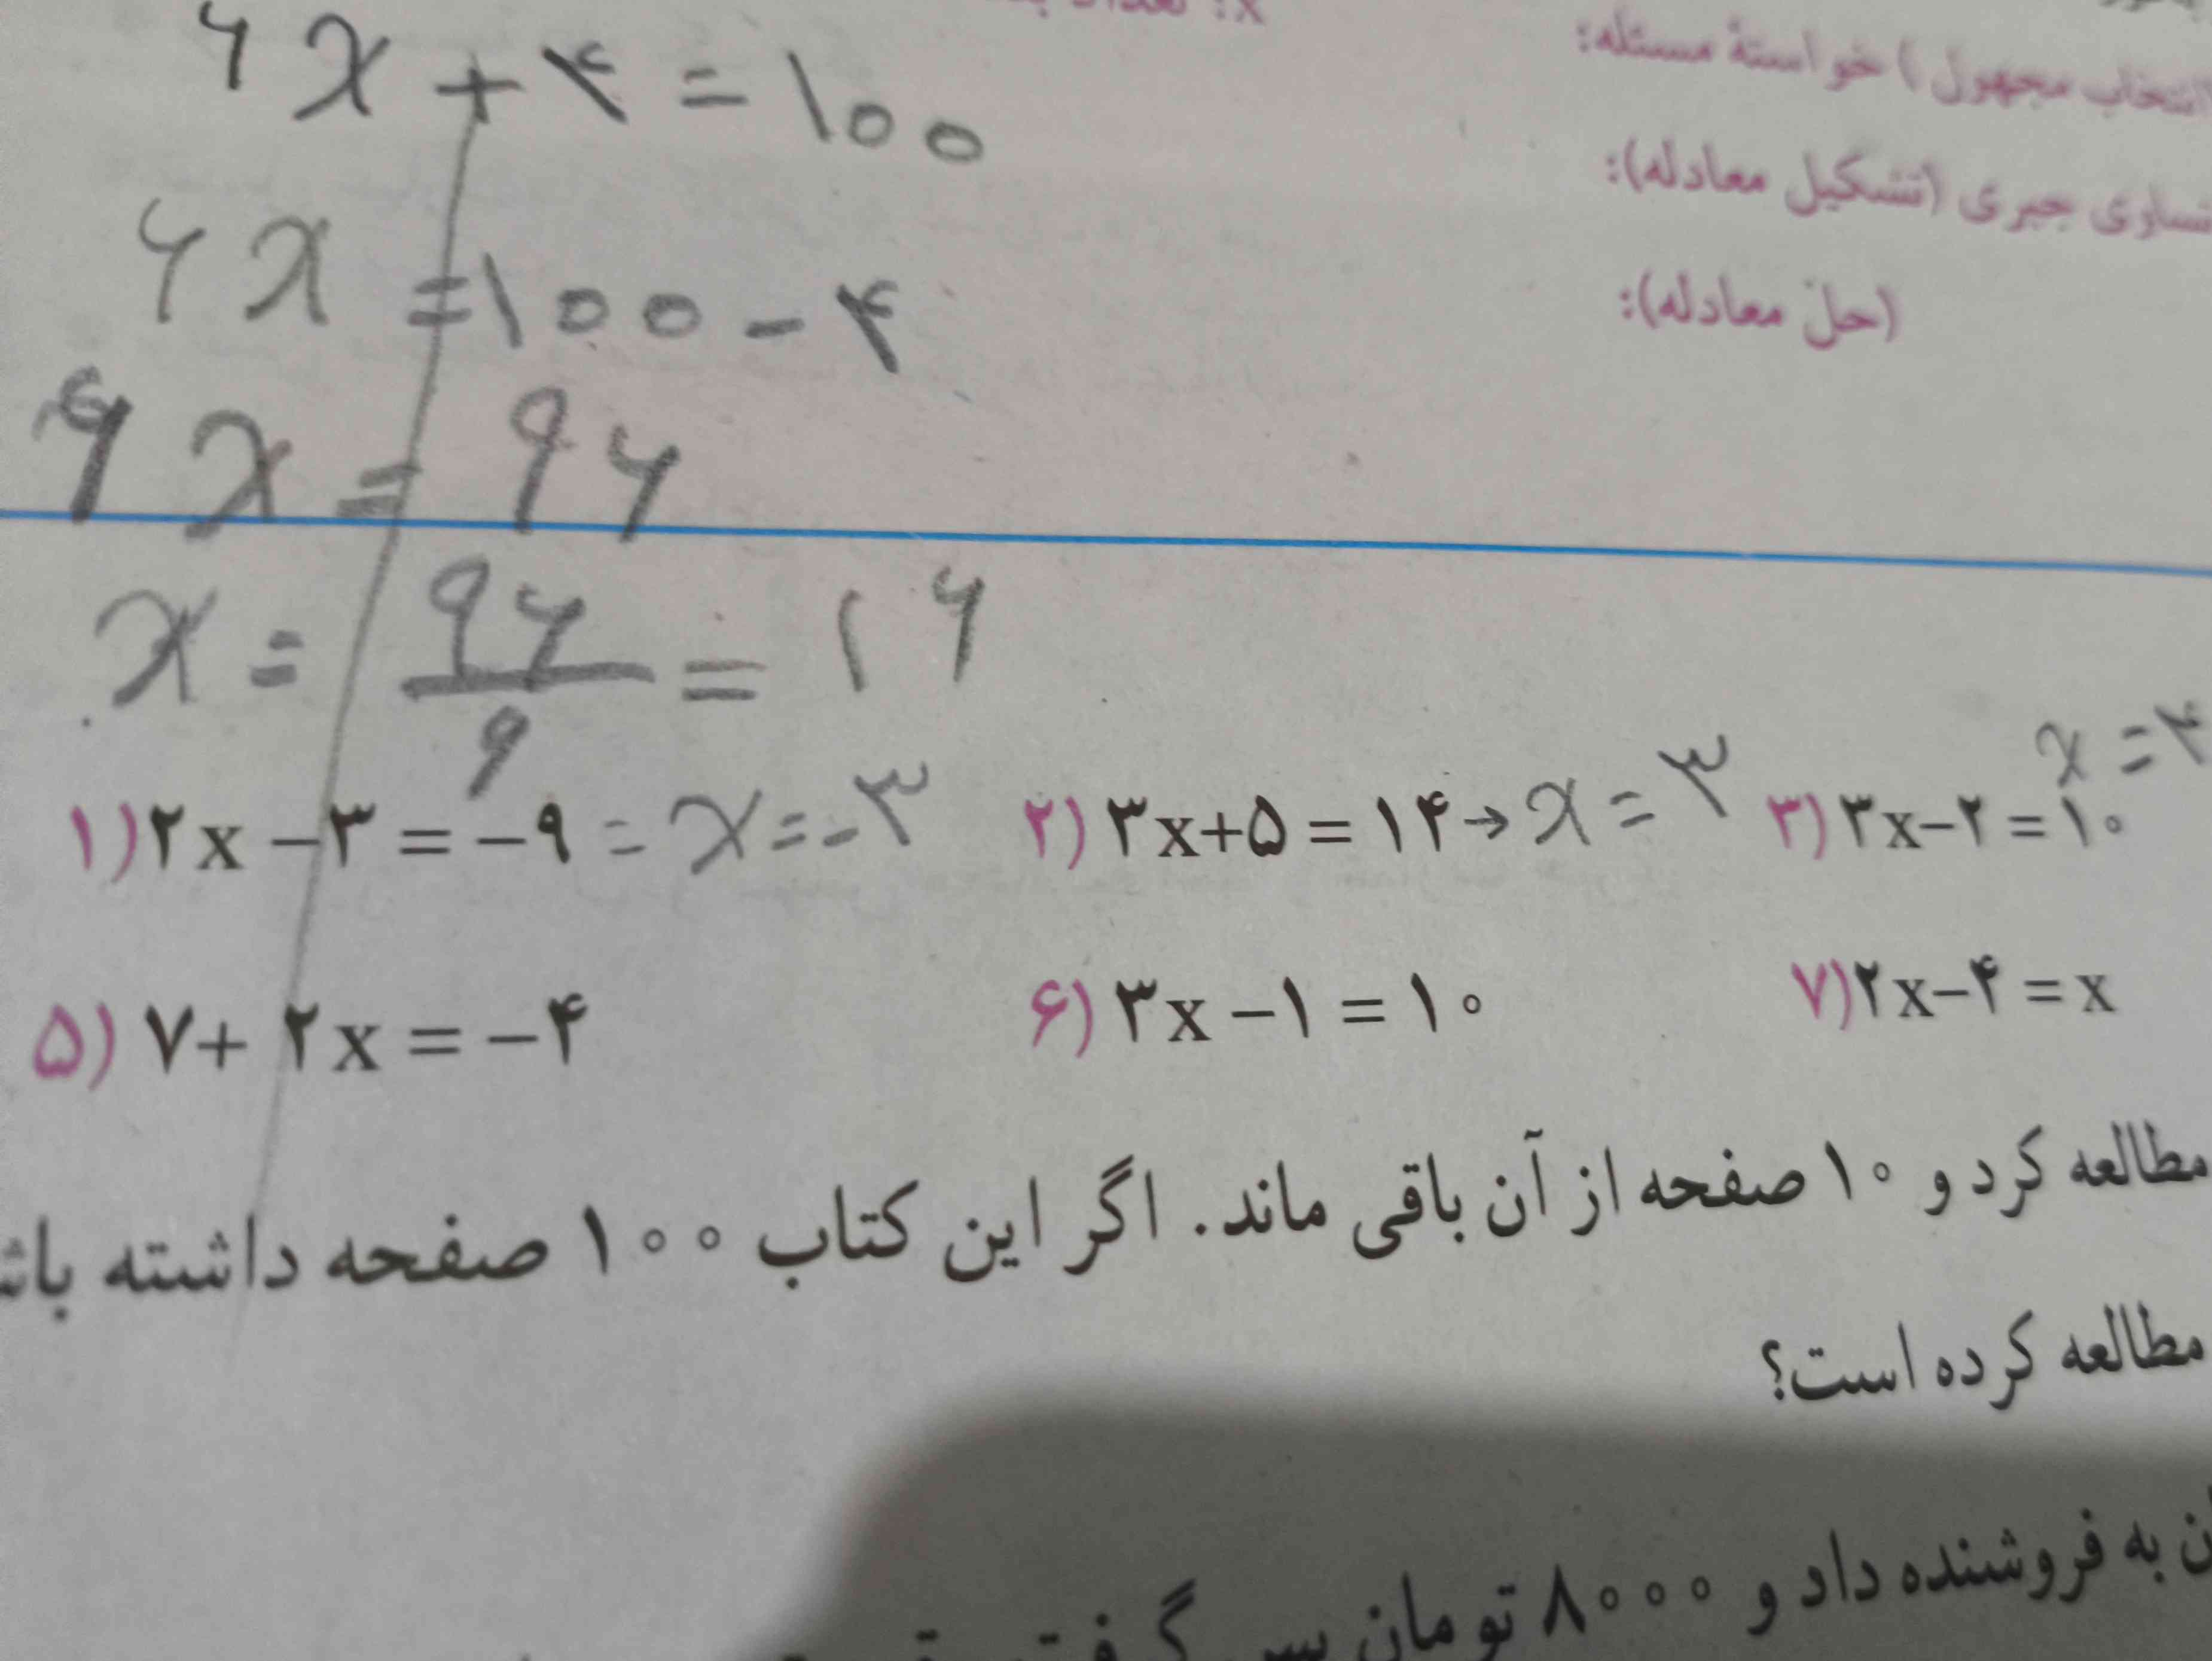 ۶x + ۴ = ۱۰۰
(انتخاب مجهول) خواستهٔ مسئله:
تساوی جبری (تشکیل معادله):
۶x = ۱۰۰ - ۴
(حلّ معادله):
x = ۹۶
x = ۹۶ = ۱۶
x = ۴
۱) ۲x - ۳ = -۹ = x = -۳ ۲) ۳x + ۵ = ۱۴ → x = ۳ ۳) ۳x - ۲ = ۱۰
۵) ۷ + ۲x = -۴ ۶) ۳x - ۱ = ۱۰ ۷) ۲x - ۴ = x
مطالعه کرد و ۱۰ صفحه از آن باقی ماند. اگر این کتاب ۱۰۰ صفحه داشته
مطالعه کرده است؟
به فروشنده داد و ۸۰۰۰ تومان پس